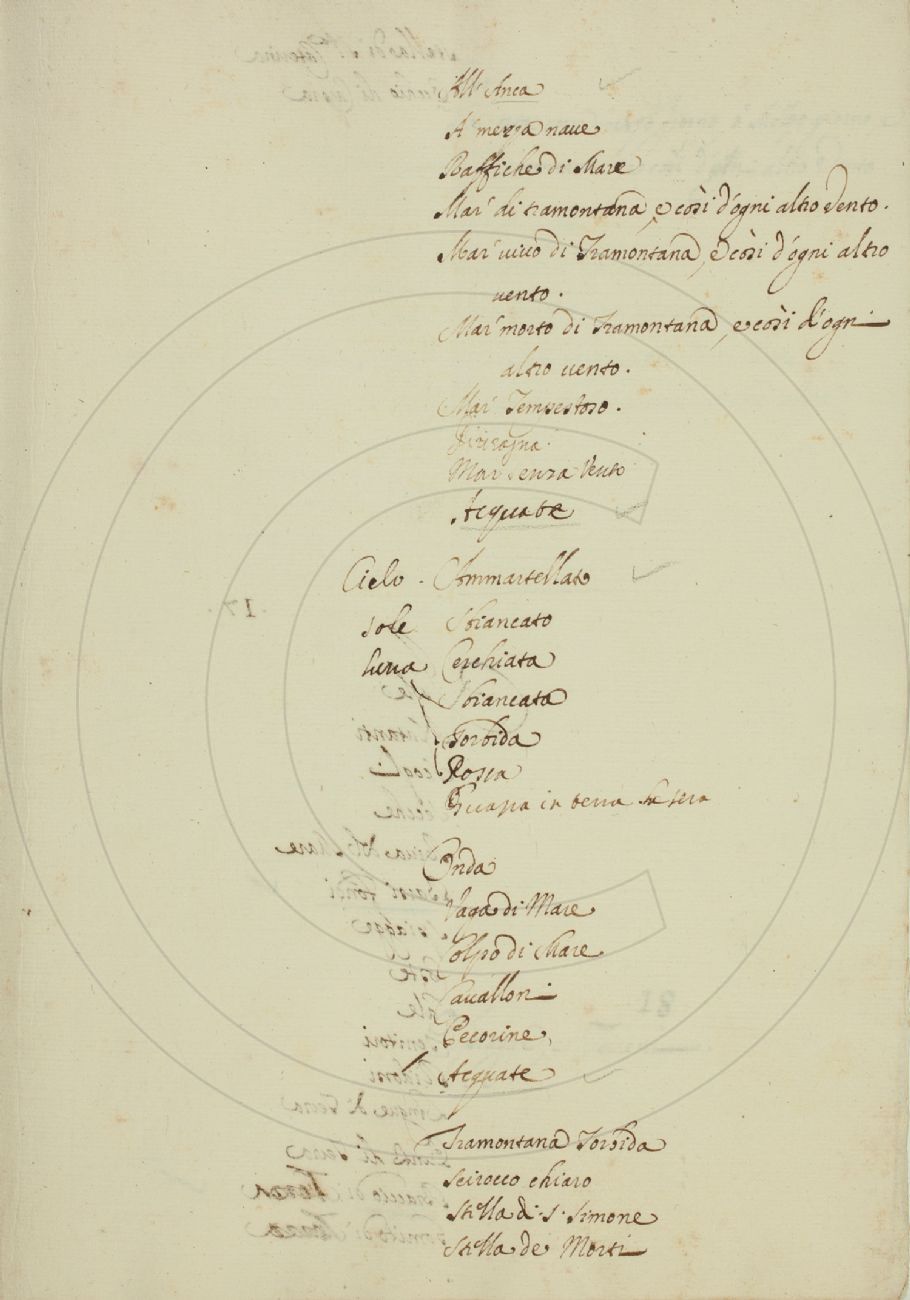 All' Anca
A' mezza naue
Raffiche di Mare
Mar' di tramontana, e così d'ogni altro Vento.
Mar' viuo di Tramontana, e così d'ogni altro
uento.
Mar' morto di Tramontana, e così d'ogni
altro uento.
Mar' Tempestoso.
Mar senza Vento
Acquate
Cielo . Ammartellato
sole Sbiancato
luna Cerchiata
Sbiancata
Torbida
Rossa
in terra la sera
Onda
Vaga di Mare
Colpo di Mare
Caualloni
Pecorine
Acquate
Tramontana Torbida
Scirocco chiaro
Stella di S. Simone
Stella de Morti
17
18